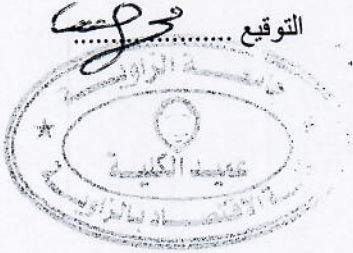 التوقيع ....................
جامعة الزاوية
عميد الكلية
كلية الاقتصاد بالزاوية